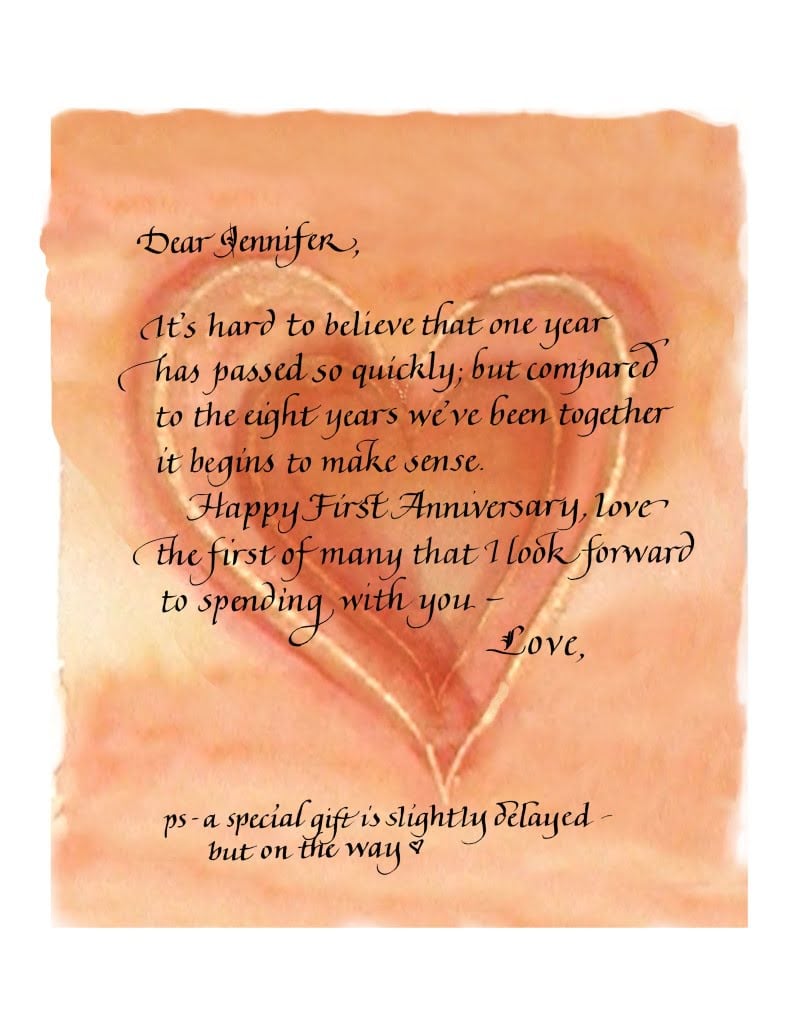 Dear Jennifer,
It's hard to believe that one year
has passed so quickly; but compared
to the eight years we've been together
it begins to make sense.
Happy First Anniversary, love
the first of many that I look forward
to spending with you –
Love,
ps - a special gift is slightly delayed –
but on the way ♥